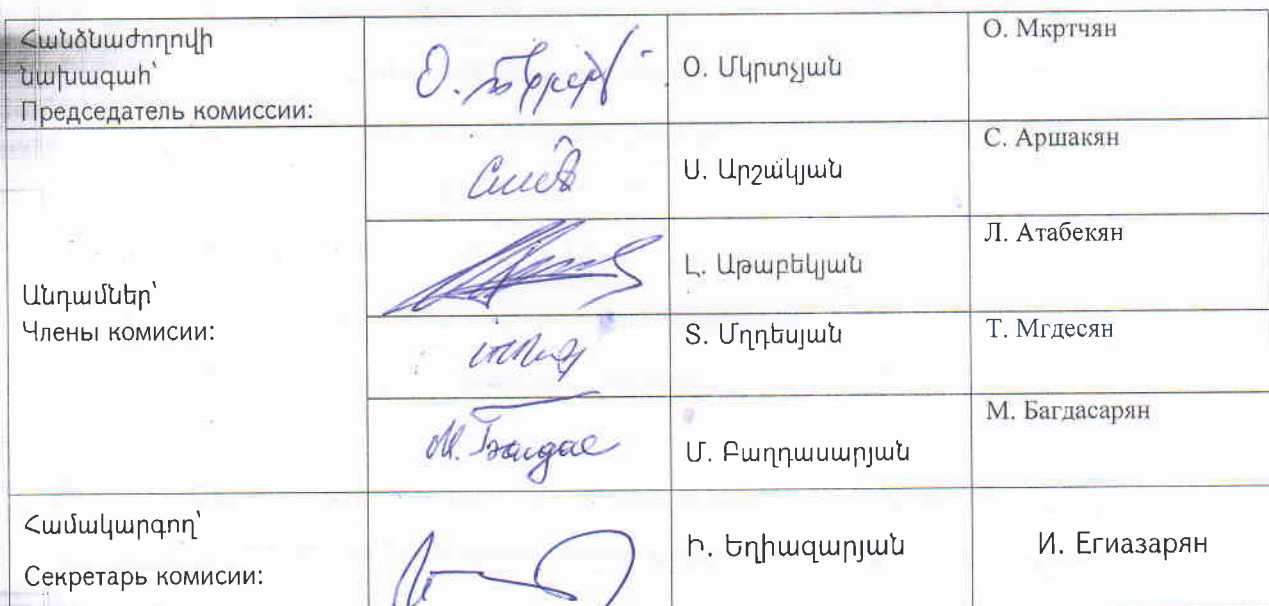 Հանձնաժողովի
նախագահ՝
Председатель комиссии:
Օ. Մկրտչյան
О. Мкртчян
Ս. Արշակյան
С. Аршакян
Անդամներ՝
Члены комисии:
Լ. Աթաբեկյան
Л. Атабекян
Տ. Մղդեսյան
Т. Мгдесян
М. Багдас
Մ. Բաղդասարյան
М. Багдасарян
Համակարգող՝
Секретарь комисии:
Ի. Եղիազարյան
И. Егиазарян